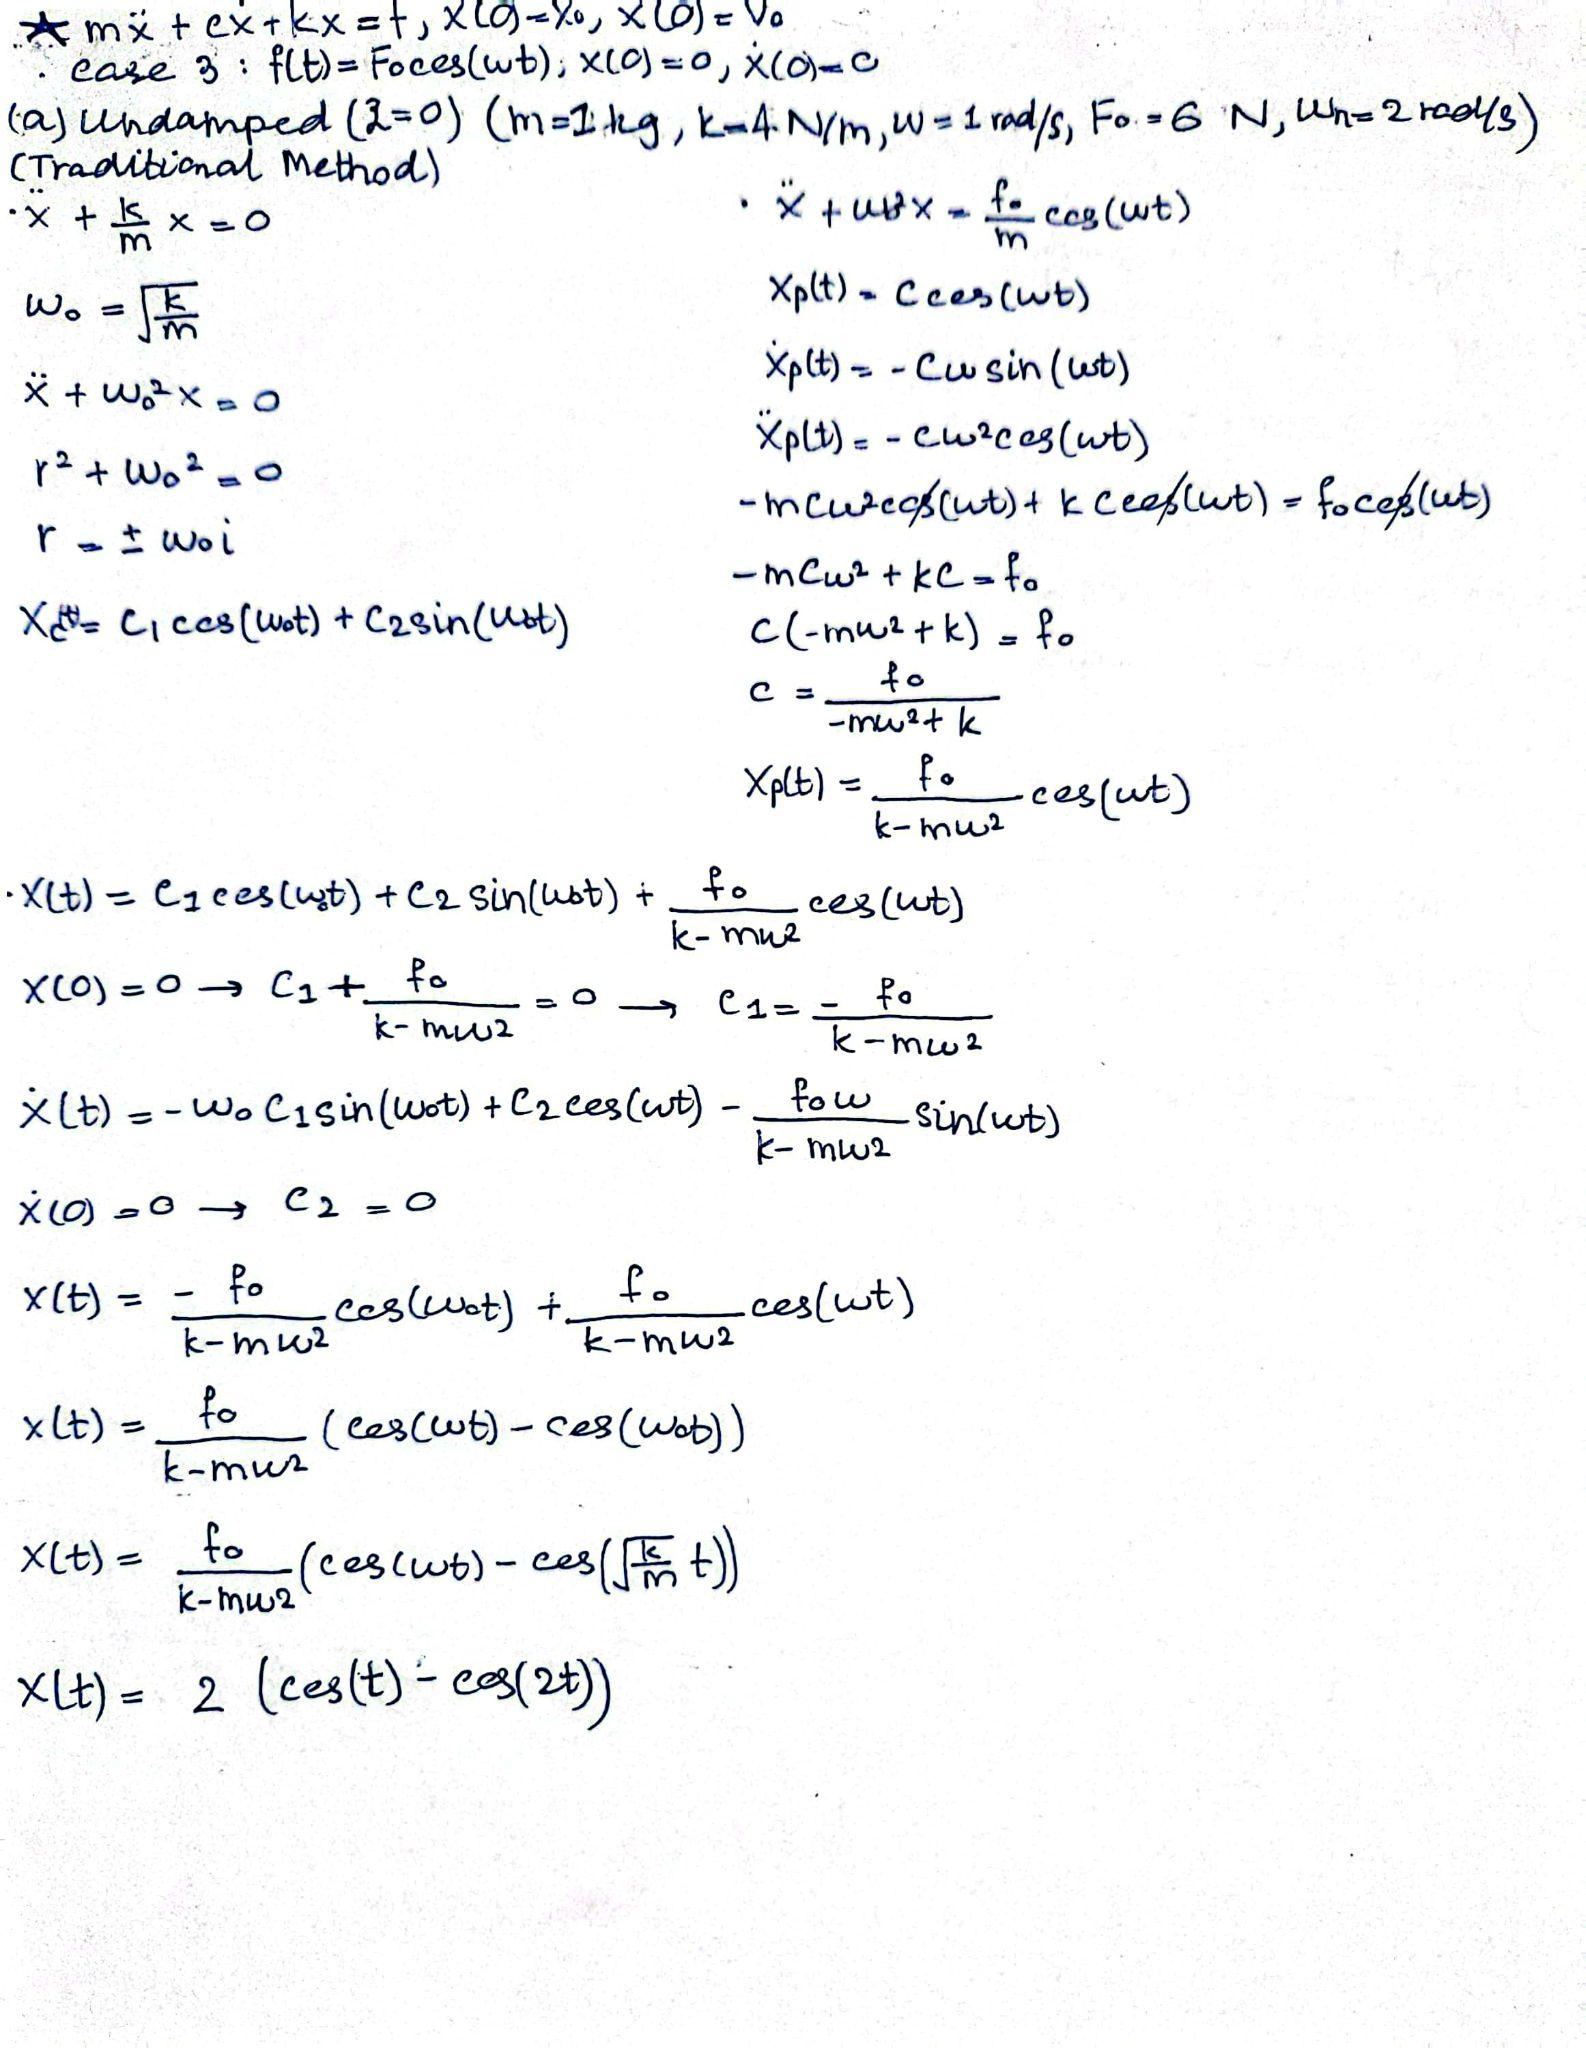 ★ mẍ + cẋ + kx = f, x(0) = x₀, ẋ(0) = v₀
· case 3 : f(t) = F₀cos(ωt), x(0) = 0, ẋ(0) = 0
(a) Undamped (ξ=0) (m=1 kg, k=4 N/m, ω = 1 rad/s, F₀ = 6 N, ωn = 2 rad/s)
(Traditional Method)
· ẍ + k/m x = 0
ω₀ = √(k/m)
ẍ + ω₀² x = 0
r² + ω₀² = 0
r = ± ω₀i
Xc(t) = C₁ cos(ω₀t) + C₂ sin(ω₀t)
· ẍ + ω₀²x = f₀/m cos(ωt)
Xp(t) = C cos(ωt)
Ẋp(t) = - Cω sin(ωt)
Ẍp(t) = - Cω² cos(ωt)
-mCω² cos(ωt) + k C cos(ωt) = f₀ cos(ωt)
-mCω² + kC = f₀
C(-mω² + k) = f₀
C = f₀/(-mω² + k)
Xp(t) = f₀/(k-mω²) cos(ωt)
· X(t) = C₁ cos(ω₀t) + C₂ sin(ω₀t) + f₀/(k-mω²) cos(ωt)
X(0) = 0 → C₁ + f₀/(k-mω²) = 0 → C₁ = - f₀/(k-mω²)
Ẋ(t) = -ω₀ C₁ sin(ω₀t) + C₂ cos(ωt) - f₀ω/(k-mω²) sin(ωt)
Ẋ(0) = 0 → C₂ = 0
X(t) = - f₀/(k-mω²) cos(ω₀t) + f₀/(k-mω²) cos(ωt)
x(t) = f₀/(k-mω²) (cos(ωt) - cos(ω₀t))
X(t) = f₀/(k-mω²) (cos(ωt) - cos(√(k/m) t))
X(t) = 2 (cos(t) - cos(2t))